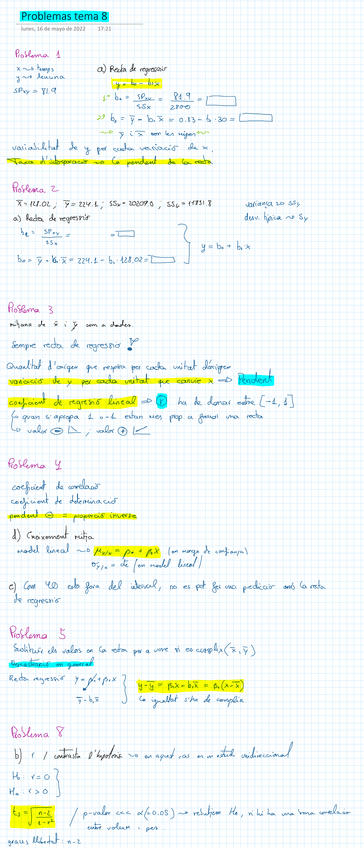 Problemas tema 8
lunes, 16 de mayo de 2022 17:21
Problema 1
x ~> temps
y ~> leucina
SPxy = 81.9
a) Recta de regressió
y = b₀ + b₁x
1º b₁ = SPxy / SSx = 81.9 / 2800 =
2º b₀ = ȳ - b₁ x̄ = 0.83 - b₁ · 30 =
ȳ i x̄ són les mitjanes
variabilitat de y per cada variació de x.
Taxa d'absorció ~> la pendent de la recta
Problema 2
x̄ = 128.02 ; ȳ = 224.1 ;
variança ~> SSy
desv. típica ~> Sy
a) Recta de regressió
b₁ = SPxy / SSx =
b₀ = ȳ - b₁ x̄ = 224.1 - b₁ · 128.02 =
y = b₀ + b₁ x
Problema 3
mitjana de x̄ i ȳ com a dades.
Sempre recta de regressió !
Quantitat d'oxigen que respira per cada unitat d'oxigen
variació de y per cada unitat que canvia x => Pendent
coeficient de regresió lineal => r ha de donar entre [-1, 1]
quan s'apropa 1 o -1 estan més prop a formar una recta
valor ⊖ , valor ⊕
Problema 4
coeficient de correlació
coeficient de determinació
pendent ⊖ = proporció inversa
d) Creixement mitjà
model lineal ~> = β₀ + β₁x (en marge de confiança)
= de (en model lineal)
e) Com 40 està fora del interval, no es pot fer una predicció amb la recta
de regressió
Problema 5
Substituir els valors en la recta per a vore si es compleix (x̄, ȳ)
Demostració en general
Recta regressió y = β₀ + β₁x
ȳ - b₁x̄
y - ȳ = β₁x - b₁x̄ = β₁(x - x̄)
La igualtat s'ha de complir
Problema 8
b) r / contrasta d'hipòtesis ~> en aquest cas en unidireccional
H₀ : r = 0
Hₐ : r > 0
/ p-valor <<< α (0.05) -> rebutjem H₀, hi ha una bona correlació
entre volum i pes
graus llibertat : n-2